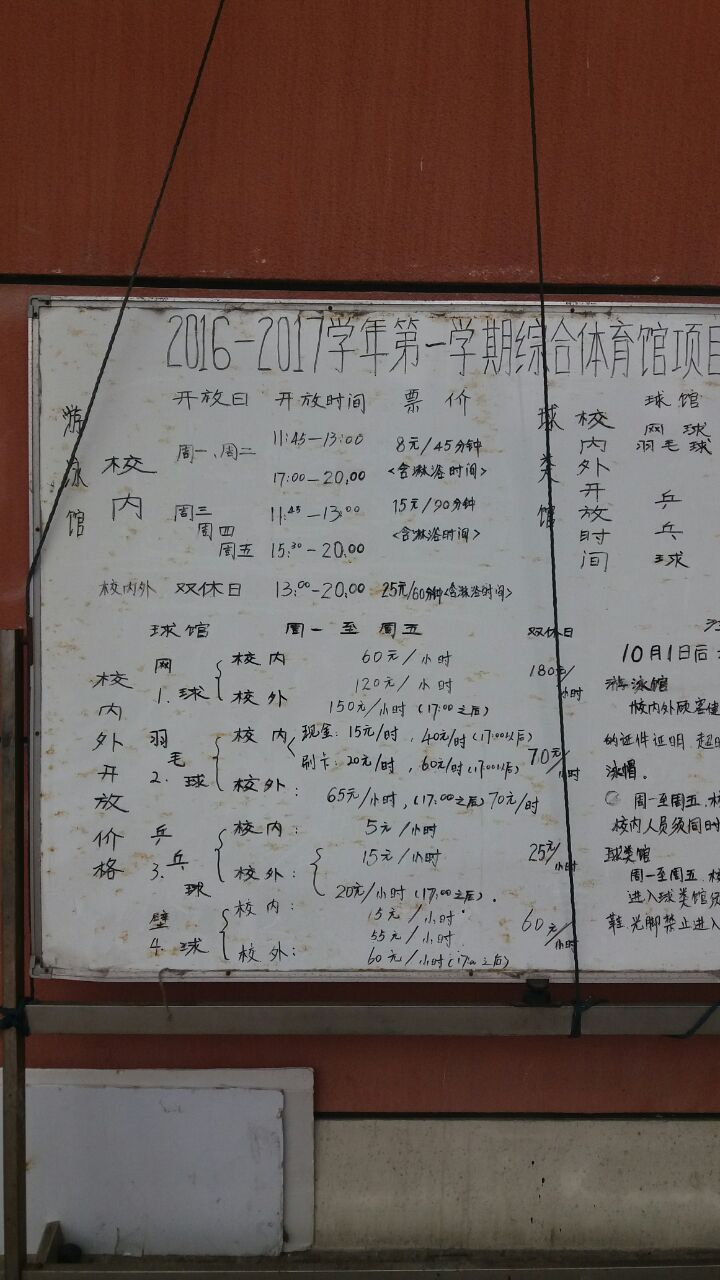 2016-2017学年第一学期综合体育馆项目
游泳馆
开放日 开放时间 票价
校内
周一、周二 11:45-13:00 8元/45分钟
17:00-20:00 <含淋浴时间>
周三 11:45-13:00 15元/90分钟
周四 <含淋浴时间>
周五 15:30-20:00
校内外 双休日 13:00-20:00 25元/60分钟<含淋浴时间>
球类馆
校内外开放时间
球馆
网球
羽毛球
乒乓球
校内外开放价格
球馆 周一至周五 双休日
1.网球 校内 60元/小时 180元/小时
120元/小时
校外 150元/小时(17:00之后)
2.羽毛球 校内 现金:15元/时,40元/时(17:00以后) 70元/时
刷卡:20元/时,60元/时(17:00以后)
校外: 65元/小时,(17:00之后)70元/时
3.乒乓球 校内: 5元/小时 25元/小时
校外: 15元/小时
20元/小时(17:00之后).
4.壁球 校内: 15元/小时 60元/小时
55元/小时
校外: 60元/小时(17:00之后)
10月1日后
游泳馆
校内外顾客
的证件证明.
泳帽.
周一至周五.校
校内人员须同时
球类馆
周一至周五.校
进入球类馆须
鞋.光脚禁止进入